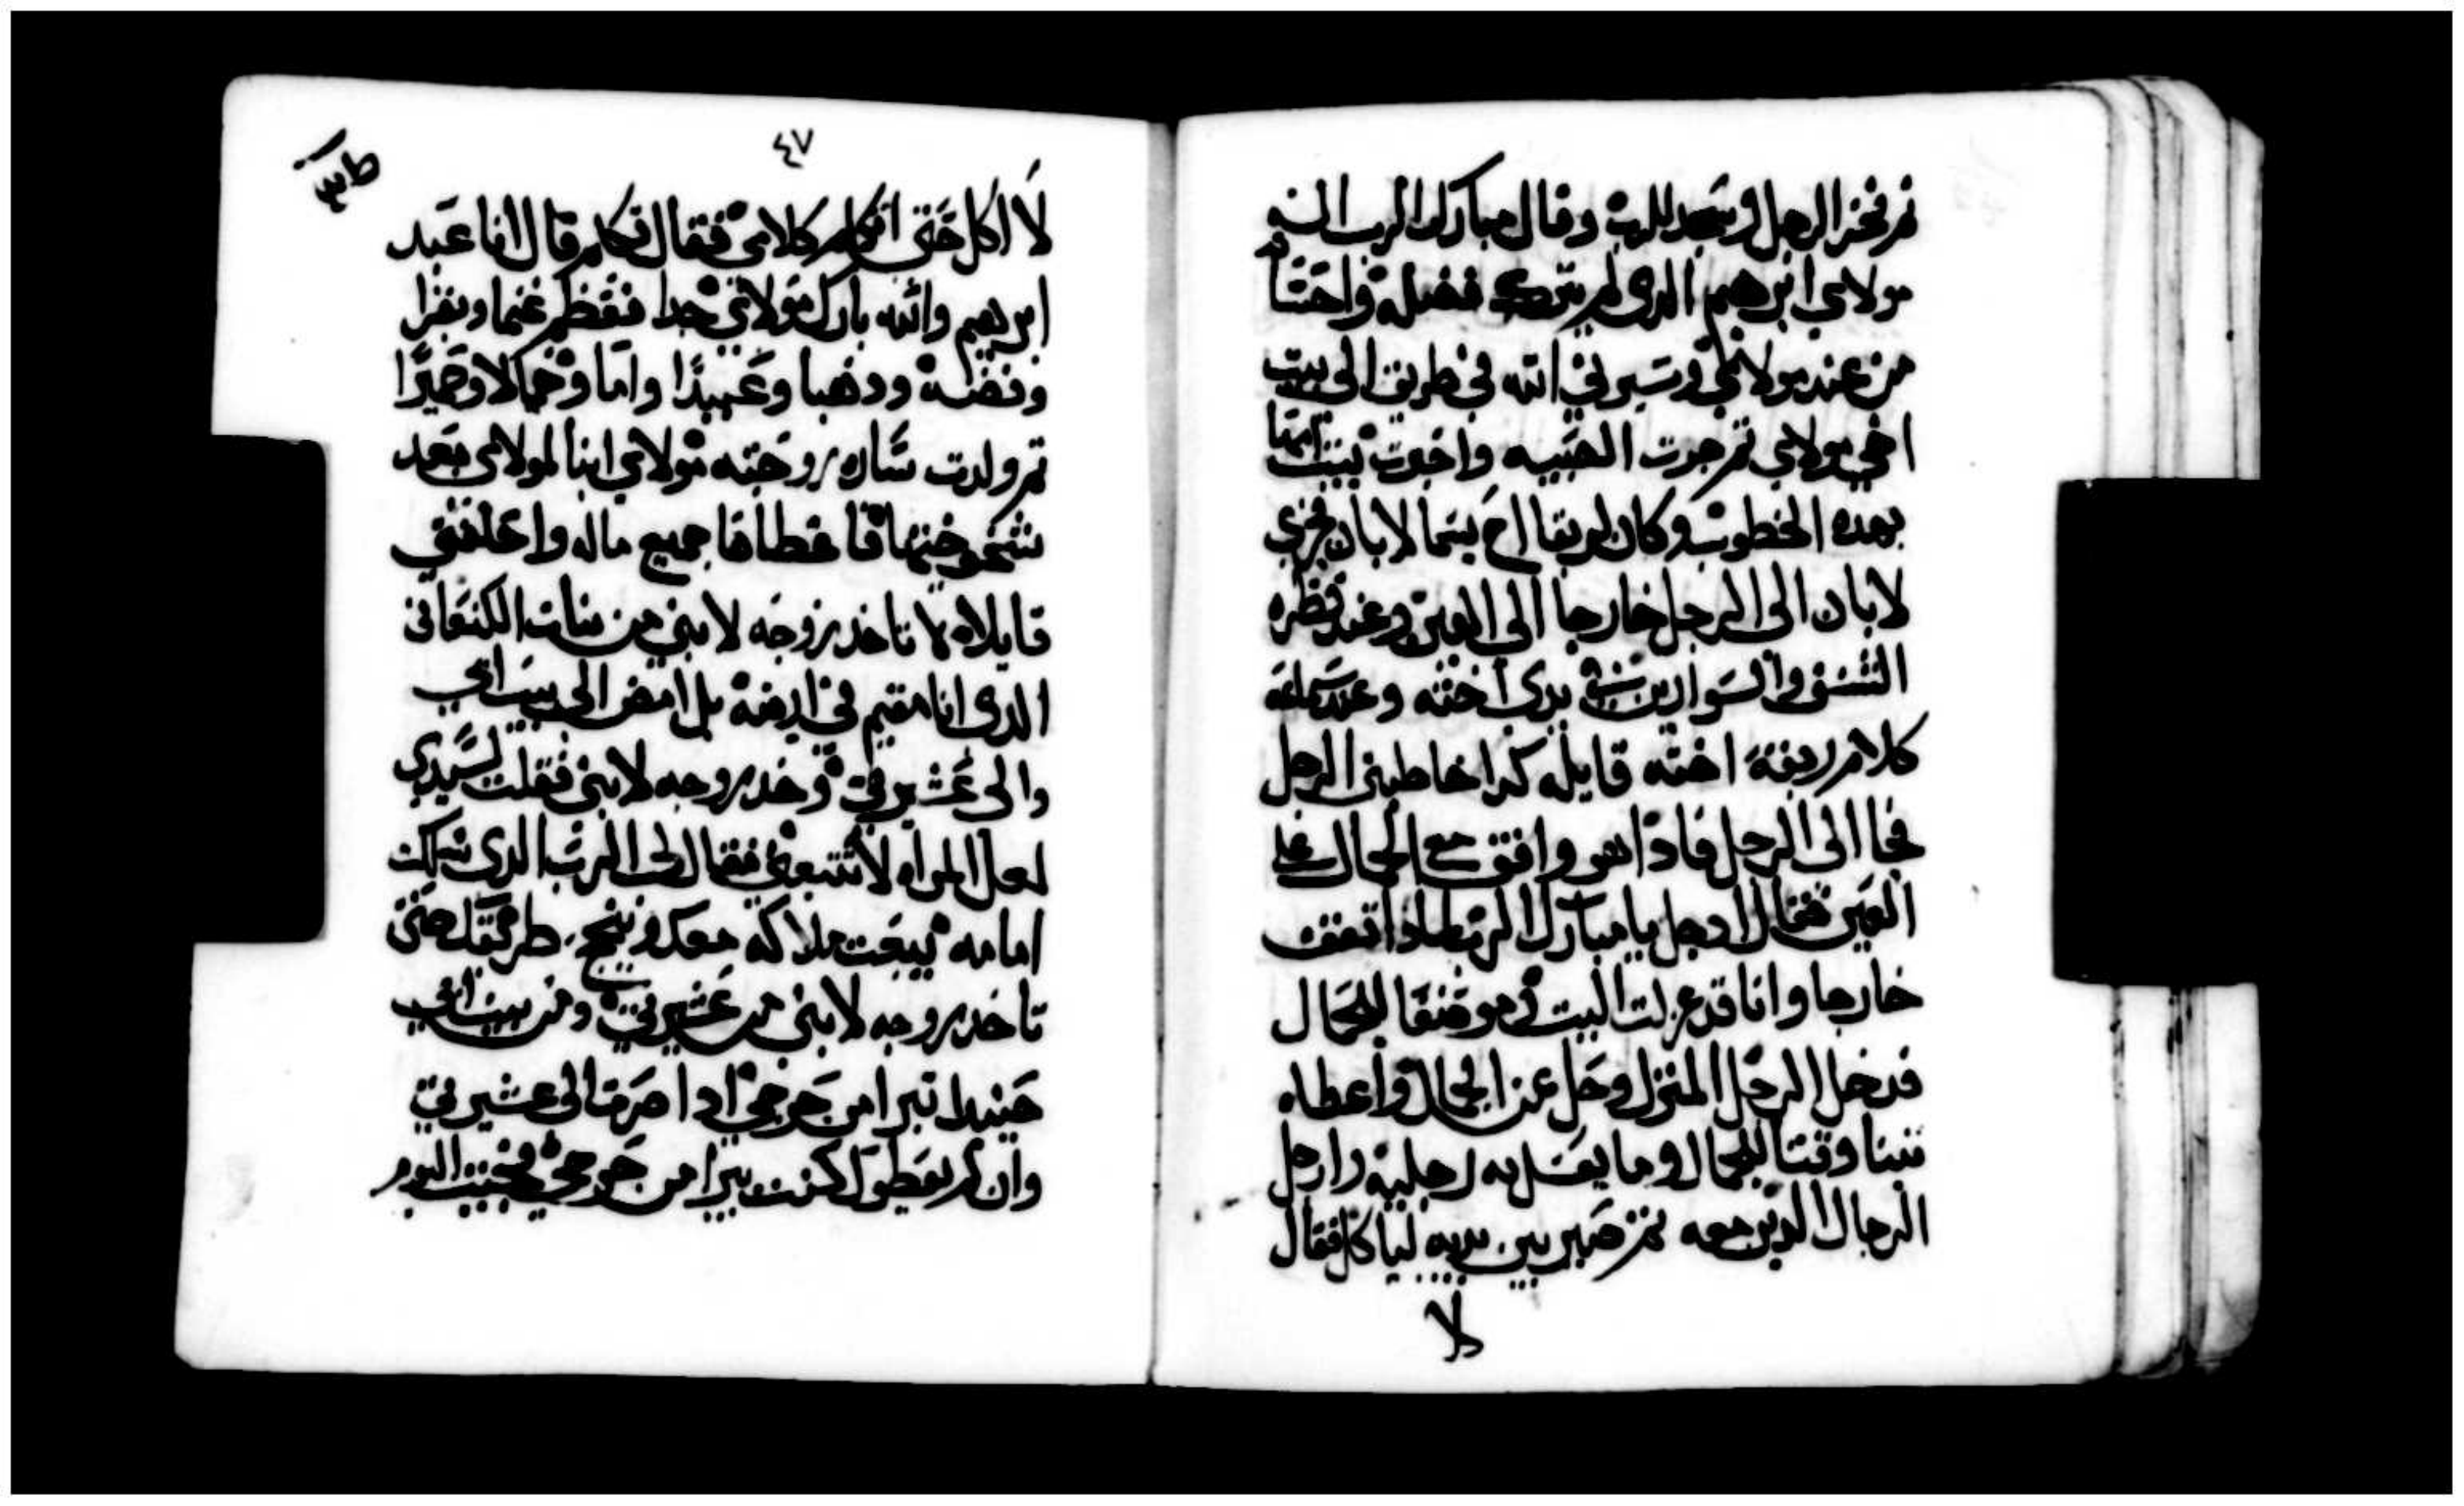 ثم فخر الرجل وسجد للرب وقال مبارك الرب اله
مولاي ابرهيم الدي لم يترك فضله واحسانه
من عند مولاي وسيرني الله في طريق الي بيت
اخي مولاي ثم جرت الصبيه واخبرت بيت امها
بهده الخطوب وكان لربقا اخ يسما لابان فجري
لابان الى الرجل خارجا الي العين وعند نظره
الشنف والسوارين في يدى اخته وعند سماعه
كلام ربقة اخته قايله كدا خاطبني الرجل
فجا الى الرجل فادا هو واقف مع الجمال علي
العين فقال ادخل يا مبارك الرب لمادا تقف
خارجا وانا قد عزلت البيت وموضعا للجمال
فدخل الرجل المنزل وحل عن الجمال واعطاه
تبنا وقتا للجمال وما يغسل به رجليه وارجل
الرجال الدين معه ثم صير بين يديه لياكل فقال
لا
٤٧
لا اكل حتى اتكلم كلامي فقال تكلم قال انا عبد
ابرهيم والله بارك مولاي جدا فعظم غنما وبقرا
وفضه ودهبا وعبيدا واما وجمالا وحميرا
تم ولدت ساره زوجته مولاي ابنا لمولاي بعد
شيخوختها فاعطاها جميع ماله واحلفني
قايلا لا تاخد زوجه لابني من بنات الكنعاني
الدى انا مقيم في ارضه بل امض الي بيت ابي
والى عشيرتي وخد زوجه لابني فقلت لسيدي
لعل المراه لا تتبعني فقال لي الرب الدى سلكت
امامه يبعت ملاكه معك وينجح طريقك حتى
تاخد زوجه لابني من عشيرتي ومن بيت ابي
حينيد تبرا من حرجي ادا صرت الى عشيرتي
وان لم يعطوك كنت بريا من حرجي فجيت اليوم